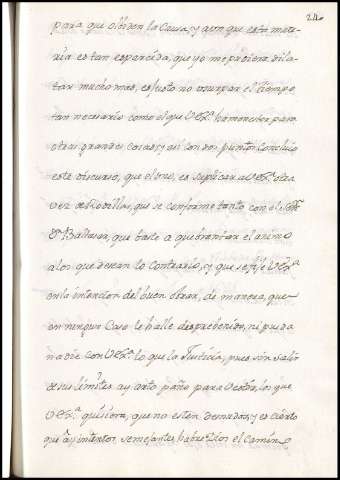 24.
para que olviden la Causa, y aun que esta mate-
ria es tan esparcida, que yo me pudiera dila-
tar mucho mas, es justo no usurpar el tiempo
tan necesario como el que V Ex.ª ha menester para
otras grandes cosas; y asi con dos puntos concluio
este discurso, que el uno, es suplicar a V Ex.ª otra
vez de Rodillas, que se conforme tanto con el Señor
Dn Baltasar, que baste a quebrantar el animo
a los que desean lo Contrario, y que se fije V Ex.ª
en la intencion del buen obrar, de manera, que
en ningun Caso le halle desprebenido, ni pueda
nadie con V Ex.ª lo que la Justicia, pues sin salir
de sus limites ay arto paño para vestir, los que
V Ex.ª quisiera, que no esten desnudos, y es cierto
que a intentos semejantes habre Dios el Camino